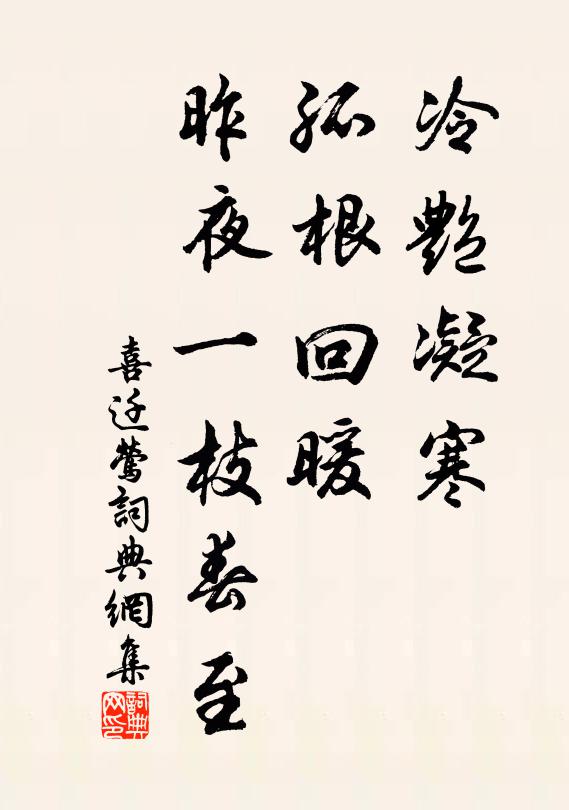 冷艷凝寒
孤根回暖
昨夜一枝春至
喜迁莺詞典網集
詞典
网印